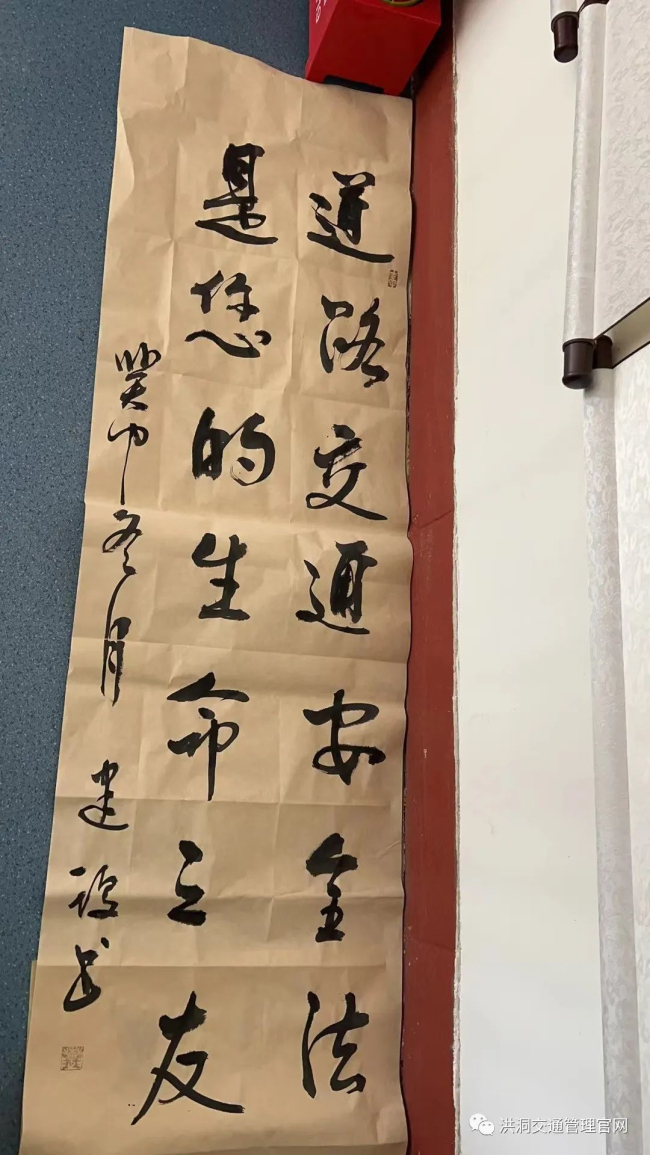 道路交通安全法
是您的生命之友
癸卯冬月 建设书
洪洞交通管理官网